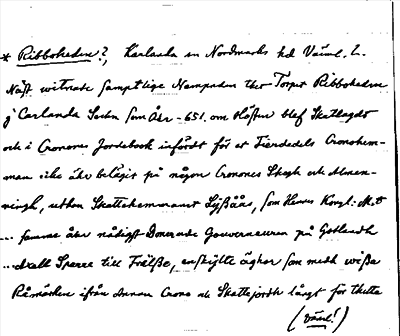 * Ribboheden?, Karlanda sn Nordmarks hd Värml. l.
Näst witnade samptlige Nampnden thet Torpet Ribboheden
j Carlanda Sochn som Åhr -651. om Hösten blef Skatlagdt
och i Cronones Jordebook infördt för et Fierdedels Cronohem-
man icke ähr belägit på någon Cronones Skogh och Almen-
ningh, uthan Skattehemmanet Lyssåås, som Hennes Kongl: M:tt
... samma åhr nådigst Donerade Gouverneuren på Gotlandh
... Sparre till Frälsse, enskyllte äghor som medh wisse
Råmärken ifrån Annan Crono och Skattejordh långt för thetta
(vänd!)